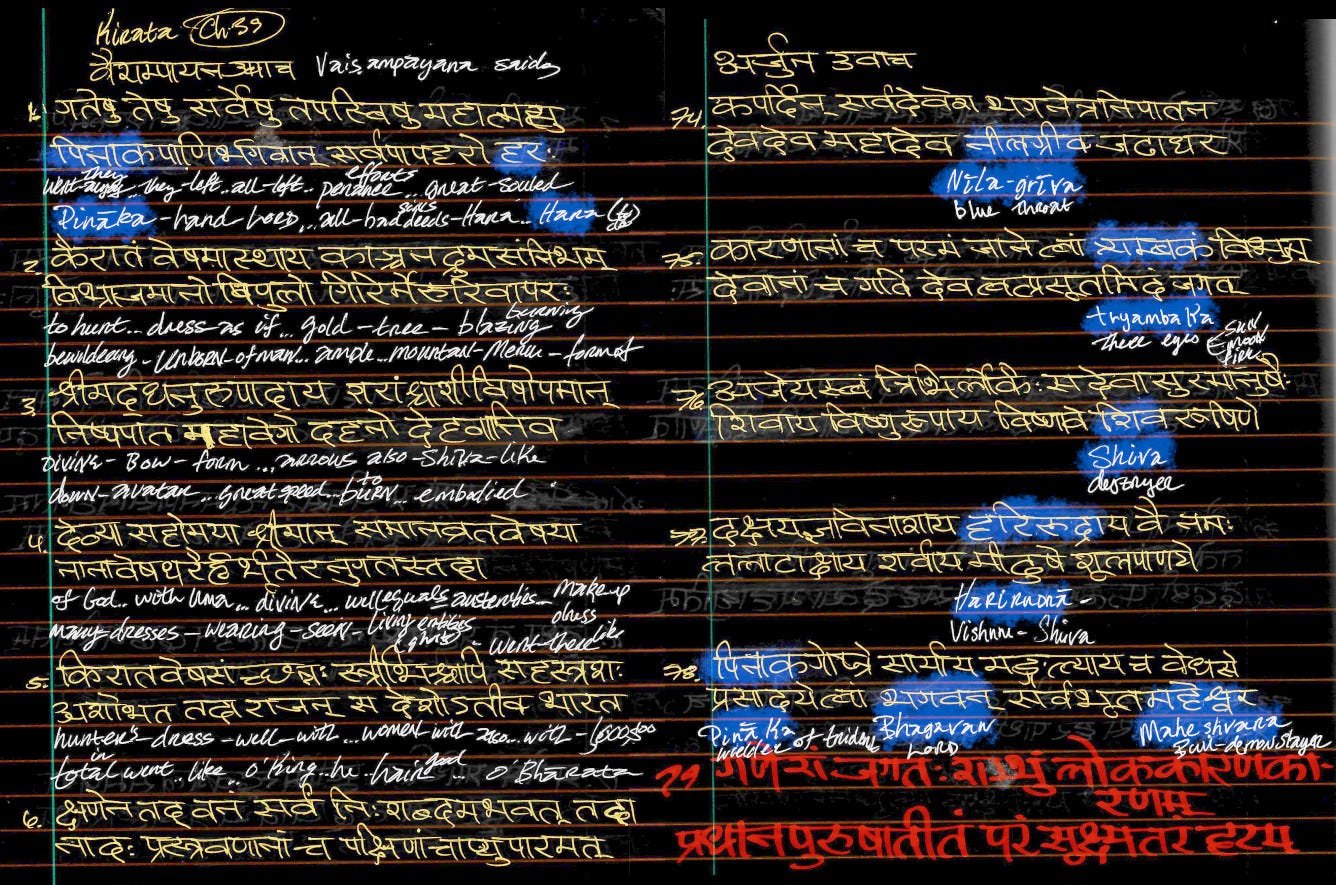 Kirata Ch.39
वैशम्पायन उवाच Vaisampayana said
1. गतेषु तेषु सर्वेषु तपस्विषु महात्मसु
पिनाकपाणिर्भगवान् सर्वपापहरो हरः
they
efforts
went away they-left..all-left.. penance...great-souled
sins
Pināka-hand Lord...all-bad deeds-Hara... Hara
2. कैरातं वेषमास्थाय काञ्चनद्रुमसंनिभम्
विभ्राजमानो विपुलो गिरिर्मेरुरिवापरः
burning
to hunt... dress-as if... gold-tree-blazing
bewildering-unborn-of man... ample...mountain-Meru-format
3. श्रीमद्धनुरुपादाय शरांश्चाशीविषोपमान्
निष्पपात महावेगो दहनो देहवानिव
Divine-Bow-form...arrows also-Shiva-like
to
down-avatar...great speed...burn...embodied
4. देव्या सहोमया श्रीमान् समानव्रतवेषया
नानावेषधरैर्हृष्टैर्भूतैरनुगतस्तदा
of God..with Uma...divine...well equals austerities-makeup
dress
many dresses-wearing-seen-living entities
(ghosts)..went-there like
5. किरातवेषसंच्छन्नः स्त्रीभिश्चापि सहस्त्रशः
अशोभत तदा राजन् स देशोऽतीव भारत
hunter's-dress-well-with...women-with also...with-
in
god
total went..like..o'King..he..hair...o'Bhārata
6. क्षणेन तद् वनं सर्वं निःशब्दमभवत् तदा
नादः प्रस्त्रवणानां च पक्षिणां चाप्युपारमत्
अर्जुन उवाच
74. कपर्दिन् सर्वदेवेश भगनेत्रनिपातन
देवदेव महादेव नीलग्रीव जटाधर
Nīla-grīva
blue throat
75. कारणानां च परमं जाने त्वां त्र्यम्बकं विभुम्
देवानां च गतिं देव त्वत्प्रसूतमिदं जगत्
tryambaka
three eyes
sun
moon
fire
76. अजेयस्त्वं त्रिभिर्लोकैः सदेवासुरमानुषैः
शिवाय विष्णुरूपाय विष्णवे शिवरूपिणे
Shiva
destroyer
77. दक्षयज्ञविनाशाय हरिरुद्राय वै नमः
ललाटाक्षाय शर्वाय मीढुषे शूलपाणये
Harirudra-
Vishnu-Shiva
78. पिनाकगोप्त्रे सूर्याय मङ्गल्याय च वेधसे
प्रसादये त्वां भगवन् सर्वभूतमहेश्वर
Pināka
wielder of trident
Bhagavan
Lord
Maheshvara
Bull-demon slayer
79 गणेशं जगतः शम्भुं लोककारणका-
रणम्
प्रधानपुरुषातीतं परं सूक्ष्मतरं हरम्